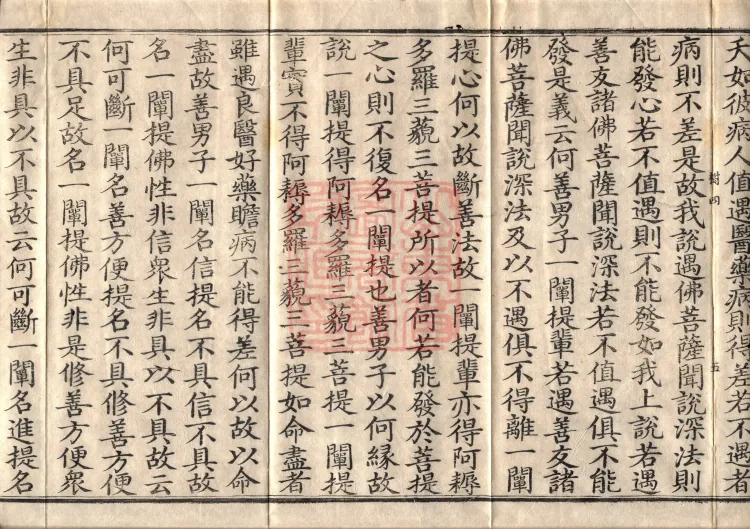 夭如彼病人值遇醫藥病則得差若不遇者
病則不差是故我說遇佛菩薩聞說深法則
能發心若不值遇則不能發如我上說若遇
善友諸佛菩薩聞說深法若不值遇俱不能
發是義云何善男子一闡提輩若遇善友諸
佛菩薩聞說深法及以不遇俱不得離一闡
提心何以故斷善法故一闡提輩亦得阿耨
多羅三藐三菩提所以者何若能發於菩提
之心則不復名一闡提也善男子以何緣故
說一闡提得阿耨多羅三藐三菩提一闡提
輩實不得阿耨多羅三藐三菩提如命盡者
雖遇良醫好藥瞻病不能得差何以故以命
盡故善男子一闡名信提名不具信不具故
名一闡提佛性非信眾生非具以不具故云
何可斷一闡名善方便提名不具修善方便
不具足故名一闡提佛性非是修善方便眾
生非具以不具故云何可斷一闡名進提名